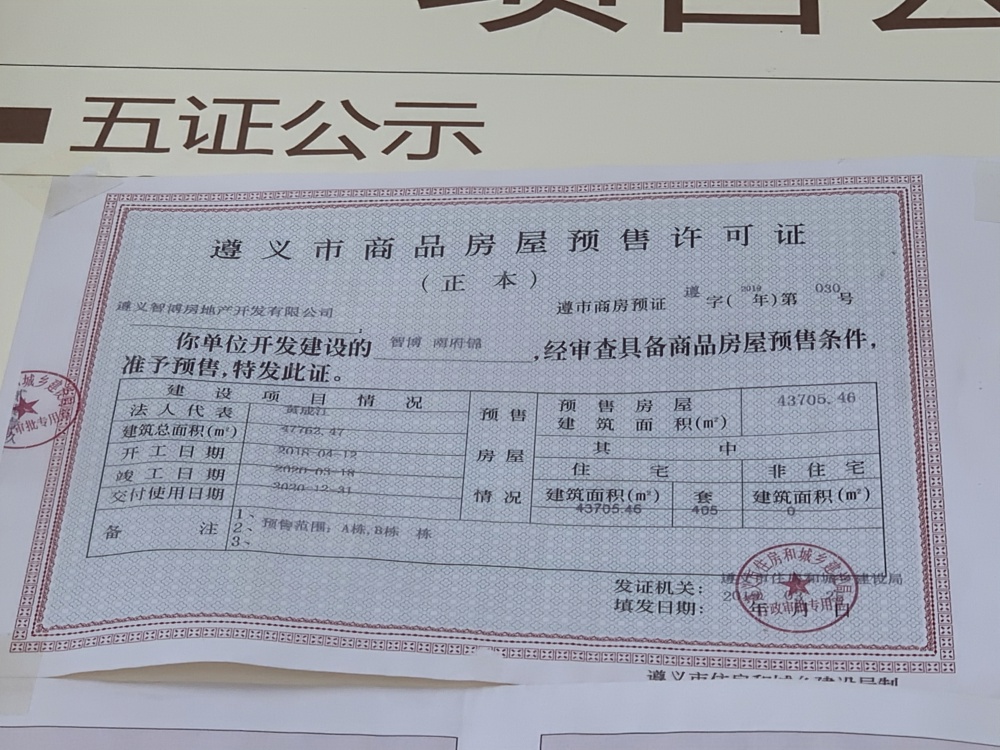 五证公示
遵义市商品房屋预售许可证
(正本)
遵义智博房地产开发有限公司:
遵市商房预证 遵 字( 2019 年)第 030 号
你单位开发建设的 智博 南府锦 ,经审查具备商品房屋预售条件,
准予预售,特发此证。
建设项目情况
法人代表
建筑总面积(㎡) 47763.47
开工日期 2018-04-12
竣工日期 2020-03-18
交付使用日期 2020-12-31
预售房屋情况
预售房屋建筑面积(㎡) 43705.46
其中
住宅 非住宅
建筑面积(㎡) 套 建筑面积(㎡)
43705.46 405 0
备注
1、
2、预售范围: A栋,B栋 栋
3、
发证机关: 遵义市住房和城乡建设局
填发日期: 年 月 日
行政审批专用章
遵义市住房和城乡建设局制